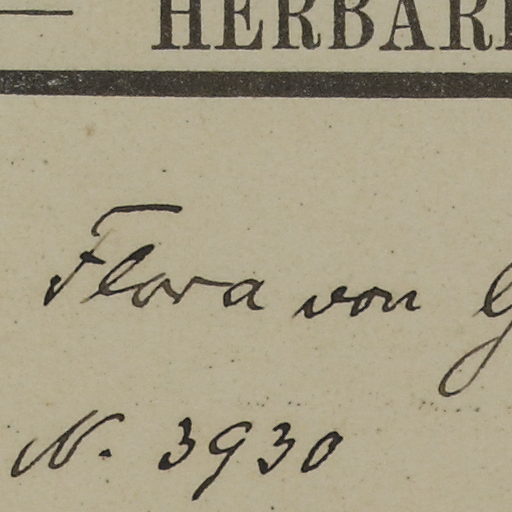 HERBARI
Flora von G
N. 3930